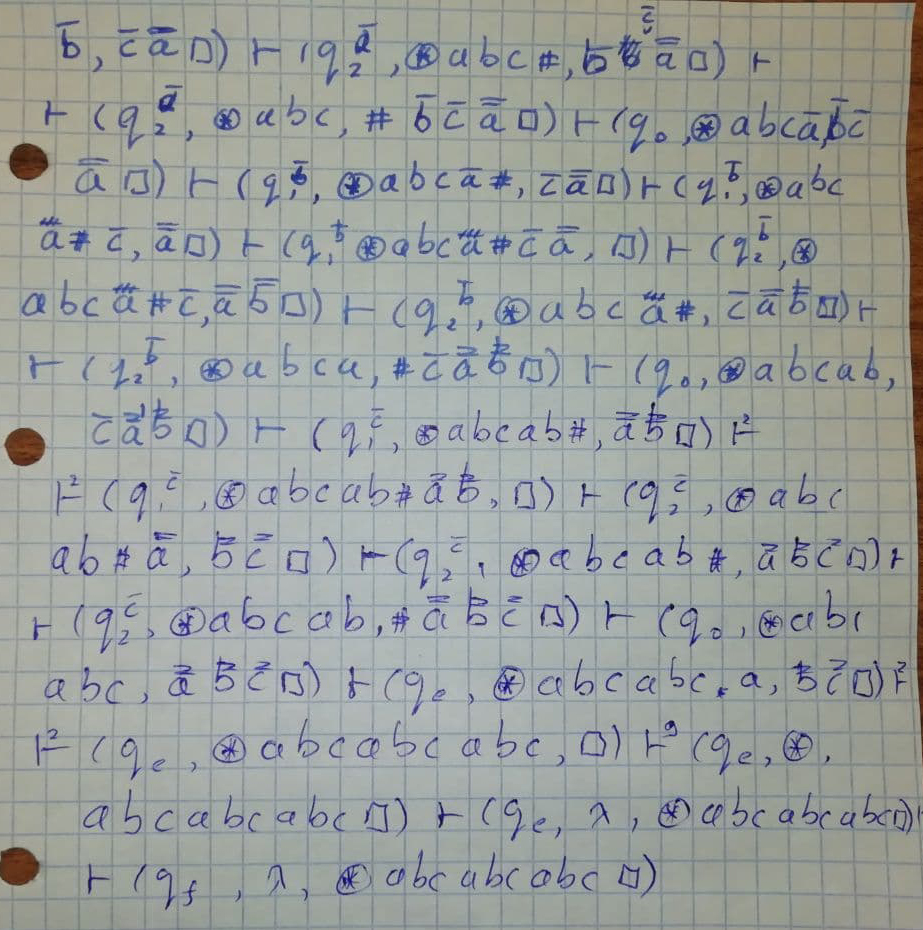 b̅, c̅ a̿ □) ⊢ (q₂^a̅, ⊛abc#, b̅ c̅ a̿ □) ⊢
⊢ (q₂^a̅, ⊛abc, # b̅ c̅ a̿ □) ⊢ (q₀, ⊛abca̅, b̅c̅
a̿ □) ⊢ (q₁^b̅, ⊛abca̅#, c̅a̿□) ⊢ (q₁^b̅, ⊛abc
a# c̅, a̿□) ⊢ (q₁^b̅ ⊛abca#c̅ a̿, □) ⊢ (q₂^b̅, ⊛
abca#c̅, a̿ b̿□) ⊢ (q₂^b̅, ⊛abca#, c̅ a̿ b̿□) ⊢
⊢ (q₂^b̅, ⊛abca, #c̅ a̿ b̿□) ⊢ (q₀, ⊛abcab,
c̅ a̿ b̿ □) ⊢ (q₁^c̅, ⊛abcab#, a̿ b̿ □) ⊢²
⊢² (q₁^c̅, ⊛abcab# a̿ b̿, □) ⊢ (q₂^c̅, ⊛abc
ab# a̿, b̿ c̿ □) ⊢ (q₂^c̅, ⊛abcab#, a̿ b̿ c̿ □) ⊢
⊢ (q₂^c̅, ⊛abcab, # a̿ b̿ c̿ □) ⊢ (q₀, ⊛abc
abc, a̿ b̿ c̿ □) ⊢ (qₑ, ⊛abcabc a, b̿ c̿ □) ⊢²
⊢² (qₑ, ⊛abcabcabc, □) ⊢⁹ (qₑ, ⊛,
abcabcabc□) ⊢ (qₑ, λ, ⊛abcabcabc□) ⊢
⊢ (q_f, λ, ⊛abcabcabc□)